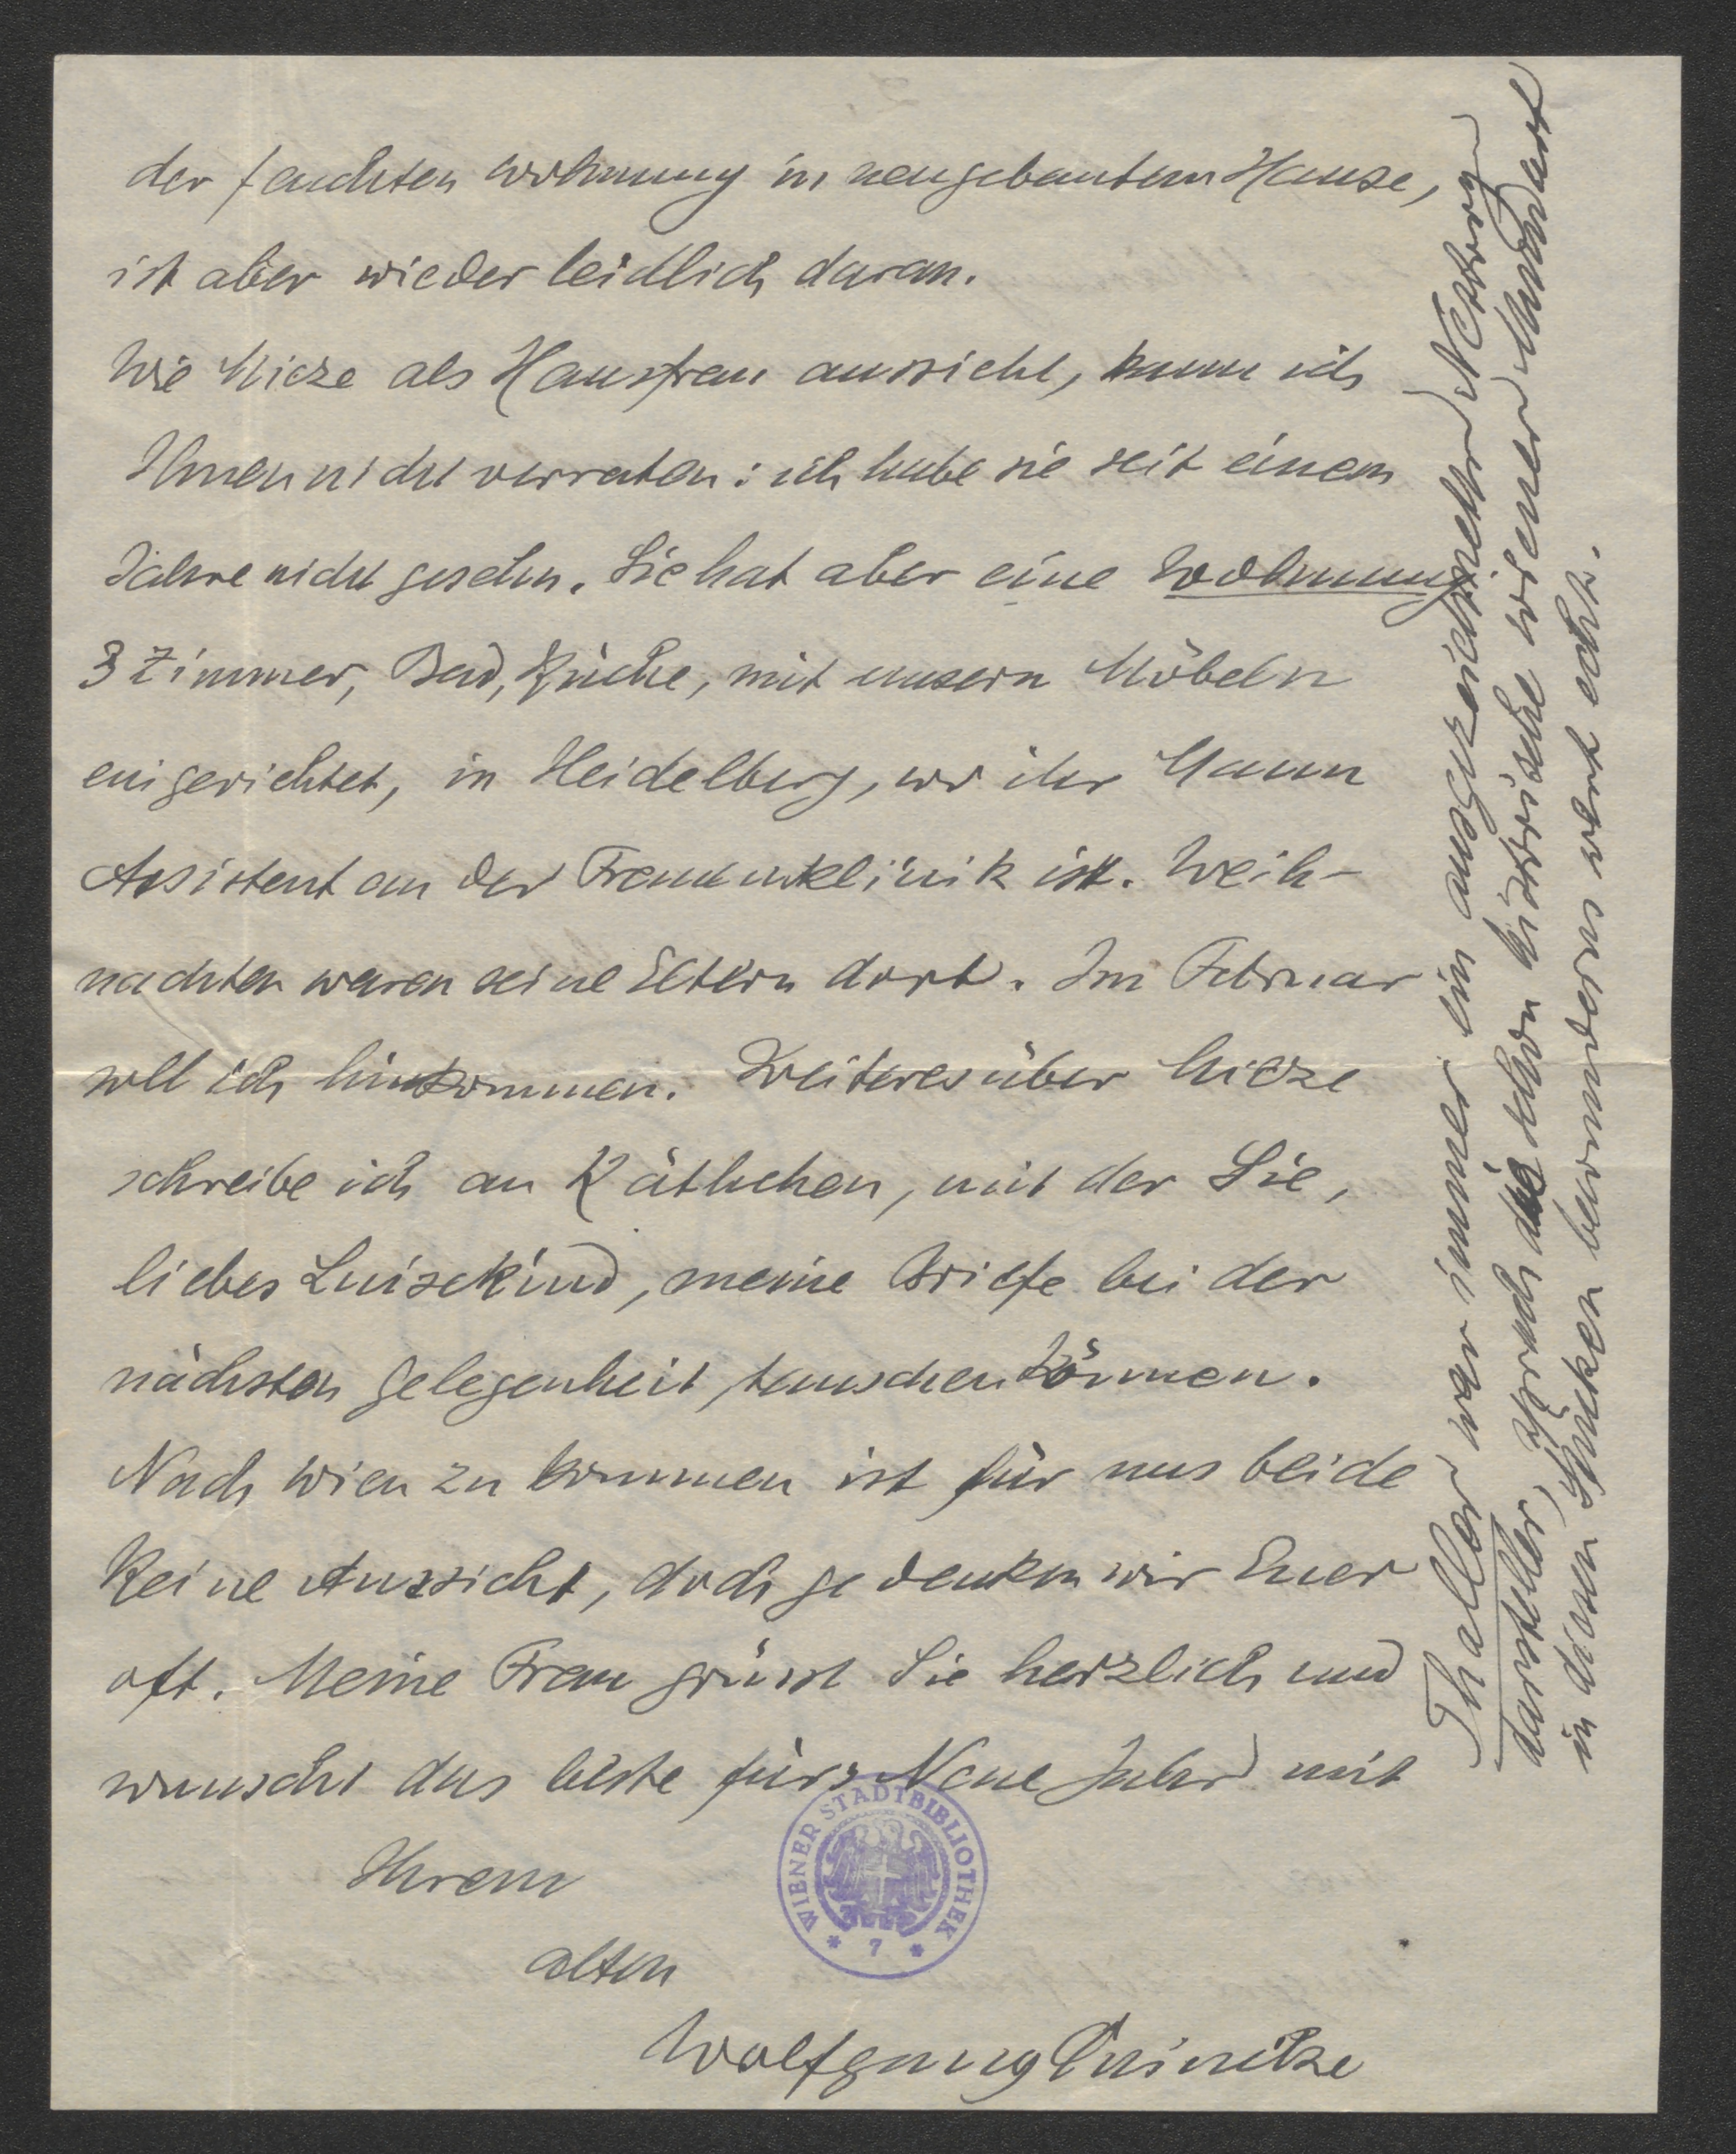 der feuchten Wohnung in neugebautem Hause,
ist aber wieder leidlich daran.
Wie Mieze als Hausfrau aussieht, kann ich
Ihnen nicht verraten: ich habe sie seit einem
Jahre nicht gesehn. Sie hat aber eine Wohnung
3 Zimmer, Bad, Küche, mit unsern Möbeln
eingerichtet, in Heidelberg, wo ihr Mann
Assistent an der Frauenklinik ist. Weih-
nachten waren seine Eltern dort. Im Februar
soll ich hinkommen. Weiteres über Mieze
schreibe ich an Käthchen, mit der Sie,
liebes Luisekind, meine Briefe bei der
nächsten Gelegenheit tauschen können.
Nach Wien zu kommen ist für uns beide
keine Aussicht, doch gedenken wir Euer
oft. Meine Frau grüsst Sie herzlich und
wünscht das beste fürs Neue Jahr mit
Ihrem
alten
Wolfgang
Thaller war immer ein ausgezeichneter Nestroy-
darsteller, sprach die schon historische wiener Mundart
in diesen Stücken bewunderns wert echt.
WIENER STADTBIBLIOTHEK
* 7 *